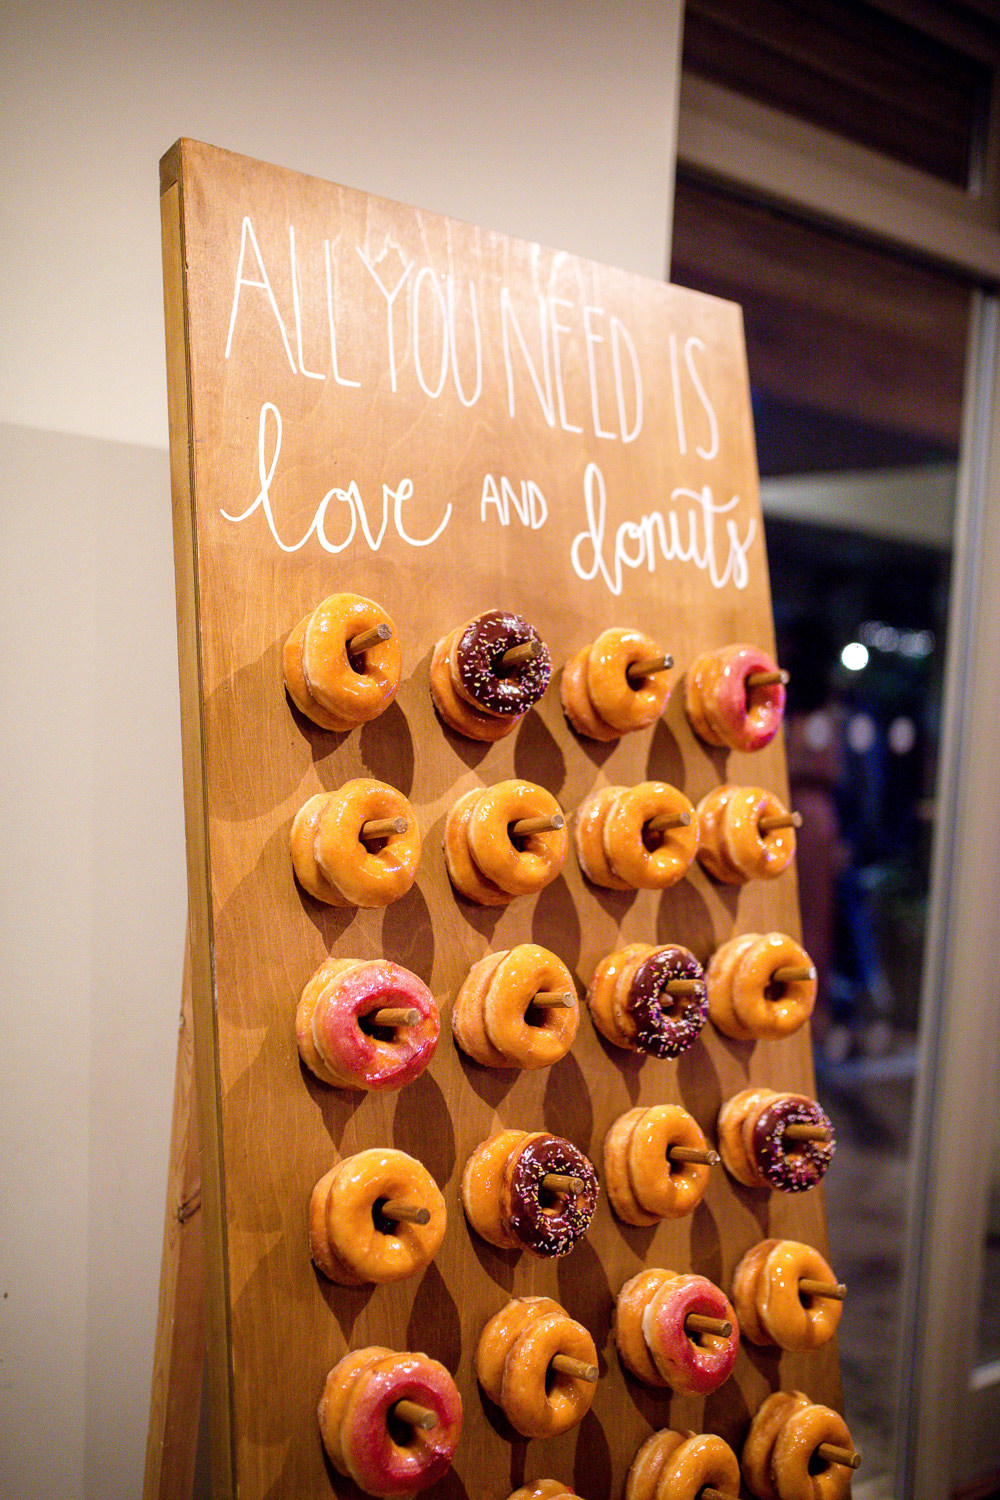 ALL YOU NEED IS
love AND donuts